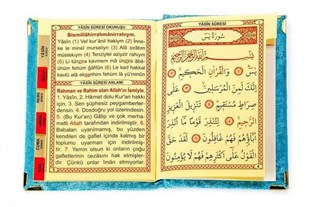 YÂSÎN SÛRESİ OKUNUŞU
Bismillâhirrahmânirrahîym.
Yâsîn (1) Vel kur'ânil hakiym (2) İnne-
ke le minel murseliyn (3) Alâ sırâtım
müstekıym (4) Tenziylel aziyzir rahıym
(5) Li tünzira kavmen mâ ünzira âbâ-
ühüm fehüm ğâfilûn (6) Le kad hakkal
kavlü alâ ekserihim fehüm lâ yü'minûn
YÂSÎN SÛRESİ ANLAMI
Rahman ve Rahim olan Allah'ın İsmiyle.
1. Yâsîn, 2. Hikmet dolu Kur'an hakkı
için, 3. Sen şüphesiz peygamberler-
densin. 4. Dosdoğru yol üzerindesin.
5. (Bu Kur'an) Gâlip ve çok merha-
metli Allah tarafından indirilmiştir. 6.
Babaları uyarılmamış, bu yüzden
kendileri de gaflet içinde kalmış bir
toplumu uyarman için indirilmiştir.
7. Yemin olsun ki onların çoğu
gafletlerinin cezasını hak etmişler-
dir. Çünkü onlar îman etmiyorlar.
YÂSÎN SÛRESİ
سُورَةُ يٰسٓ
يٰسٓ ۝ وَالْقُرْاٰنِ الْحَكِيمِ ۝
اِنَّكَ لَمِنَ الْمُرْسَلِينَ ۝ عَلٰى
صِرَاطٍ مُسْتَقِيمٍ ۝ تَنْزِيلَ الْعَزِيزِ
الرَّحِيمِ ۝ لِتُنْذِرَ قَوْمًا مَٓا اُنْذِرَ
اٰبَٓاؤُهُمْ فَهُمْ غَافِلُونَ ۝ لَقَدْ حَقَّ
الْقَوْلُ عَلٰٓى اَكْثَرِهِمْ فَهُمْ لَا يُؤْمِنُونَ